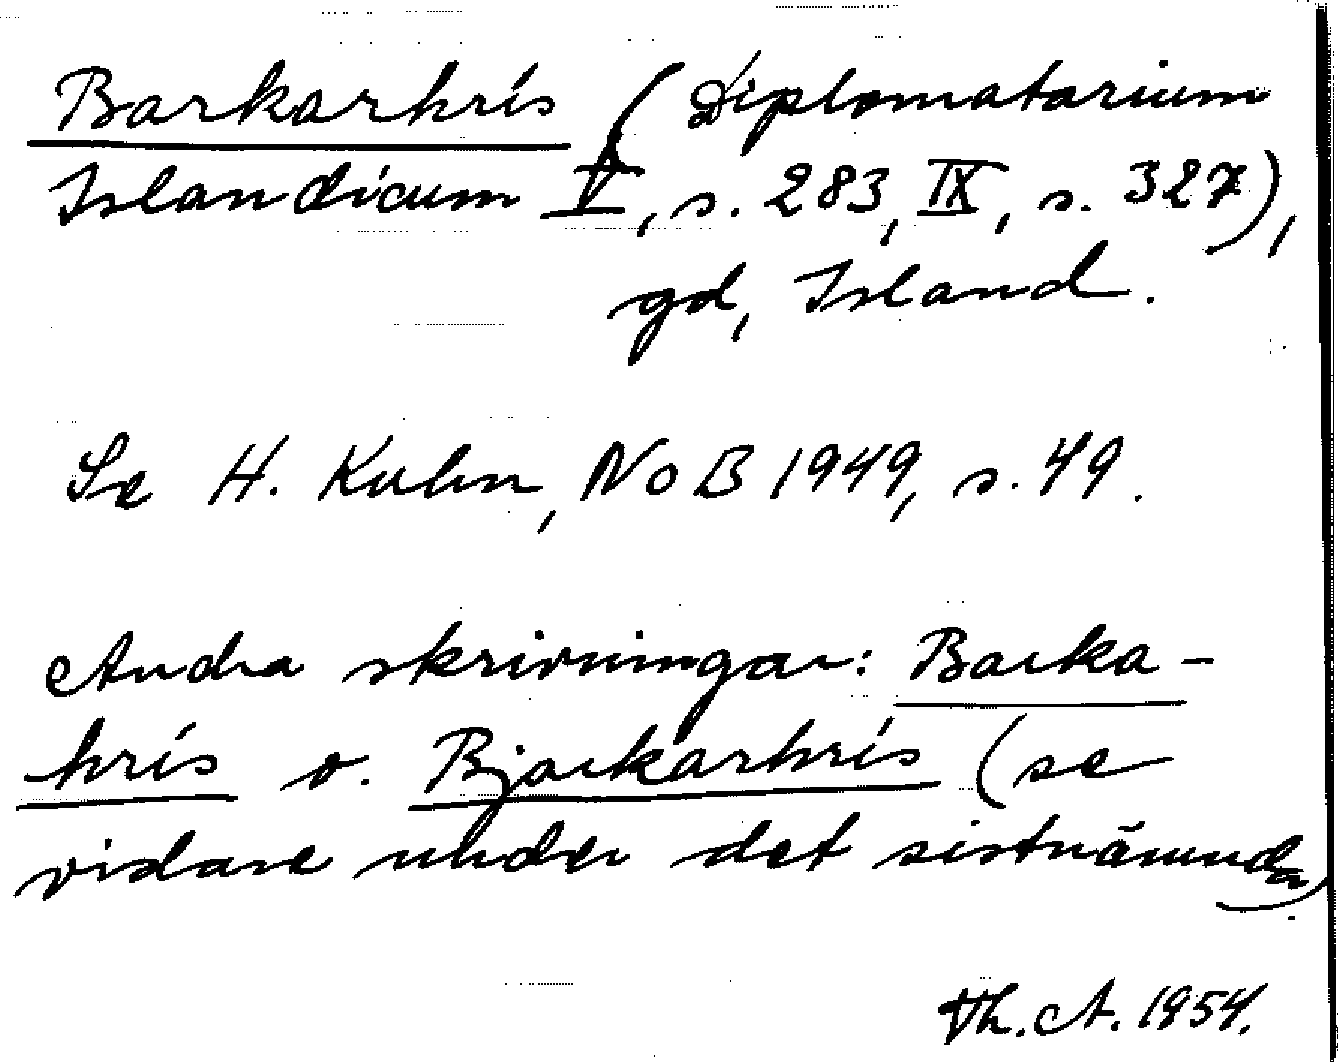 Barkarhrís (Diplomatarium
Islandicum V, s. 283, IX, s. 327),
gd, Island.
Se H. Kuhn, NoB 1949, s. 49.
Andra skrivningar: Barka-
hrís o. Bjarkarhrís (se
vidare under det sistnämnda).
Th. A. 1954.